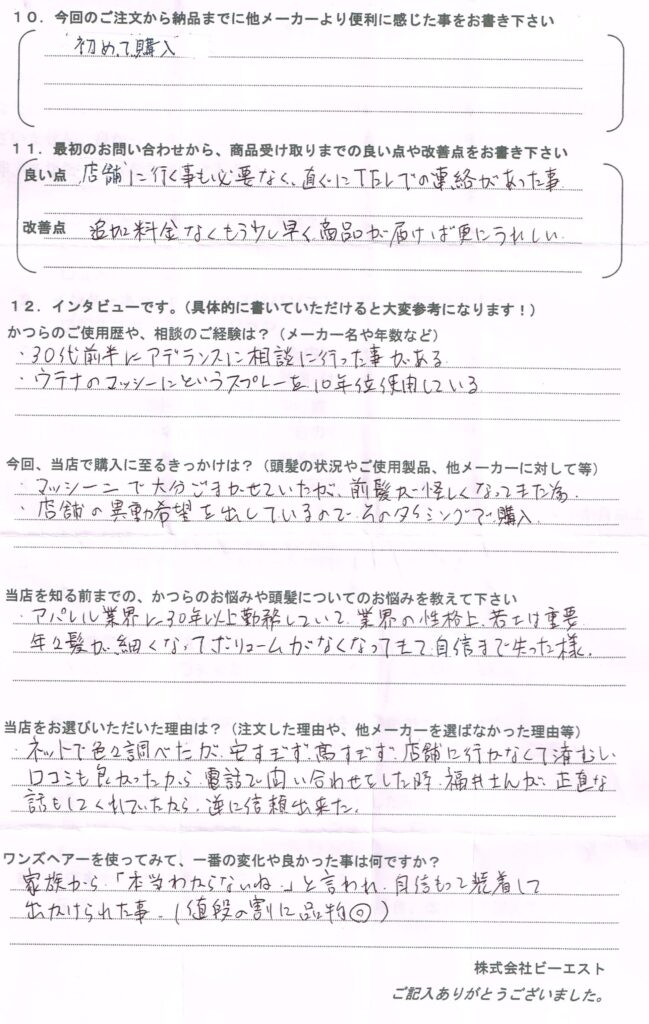 10．今回のご注文から納品までに他メーカーより便利に感じた事をお書き下さい
初めて購入
11．最初のお問い合わせから、商品受け取りまでの良い点や改善点をお書き下さい
良い点 店舗に行く事も必要なく、直ぐにTELでの連絡があった事
改善点 追加料金なくもう少し早く商品が届けば更にうれしい.
12．インタビューです。（具体的に書いていただけると大変参考になります！）
かつらのご使用歴や、相談のご経験は？（メーカー名や年数など）
・30代前半にアデランスに相談に行った事がある
・ウテナのマッシーニというスプレーを10年位使用している
今回、当店で購入に至るきっかけは？（頭髪の状況やご使用製品、他メーカーに対して等）
・マッシーニで大分ごまかせていたが、前髪が怪しくなってきた為
・店舗の異動希望を出しているので そのタイミングで購入.
当店を知る前までの、かつらのお悩みや頭髪についてのお悩みを教えて下さい
・アパレル業界に30年以上勤務していて 業界の性格上、若さは重要
年々髪が細くなってボリュームがなくなってきて自信まで失った様.
当店をお選びいただいた理由は？（注文した理由や、他メーカーを選ばなかった理由等）
・ネットで色々調べたが、安すぎず高すぎず、店舗に行かなくて済むし
口コミも良かったから 電話で問い合わせをした時 福井さんが、正直な
話もしてくれていたから、逆に信頼出来た.
ワンズヘアーを使ってみて、一番の変化や良かった事は何ですか？
家族から「本当わからないね.」と言われ、自信もって装着して
出かけられた事. （値段の割に品物◎）
株式会社ビーエスト
ご記入ありがとうございました。